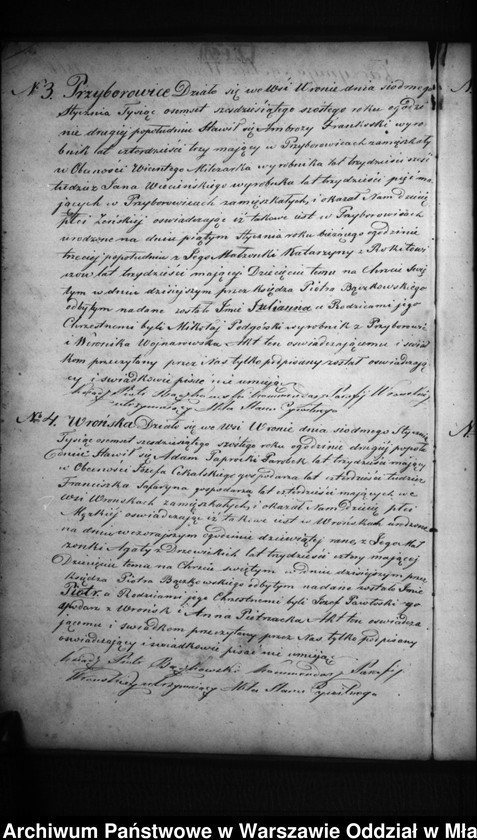 № 3. Przyborowice Działo się we Wsi Wronie dnia siodmego
Stycznia Tysiąc osmset szesdziesiątego szostego roku o godzi
nie drugiej popołudniu Stawił się Ambrozy Frankoski wyro
bnik lat czterdzieści trzy mający w Przyborowicach zamięszkały
w Obecności Wincentego Milczarka wyrobnika lat trzydzieści sześć
tudzież Jana Wiecińskiego wyrobnika lat trzydzieści pięć ma
jących w Przyborowicach zamięszkałych, i okazał Nam Dziecię
płci Żeńskiej oswiadczając iż takowe iest w Przyborowicach
urodzone na dniu piątym Stycznia roku bieżącego o godzinie
trzeciej popołudniu z Jego Małżonki Katarzyny z Rokitows
lat trzydzieści mającej Dziecięciu temu na Chrzcie Swię
tym w dniu dzisiejszym przez Księdza Piotra Bączkowskiego
odbytym nadane zostało Imie Julianna a Rodzicami jego
Chrzestnemi byli Mikołaj Podgórski wyrobnik z Przyborowic
i Weronika Wojnarowska Akt ten oswiadczającemu i swiad
kom przeczytany przez Nas tylko podpisany został oswiadczają
cy i swiadkowie pisac nie umieją
Ksiądz Piotr Bączkowski Kommendarz Parafij Wronskiej
utrzymujący Akta Stanu Cywilnego
№ 4. Wrońska Działo się we Wsi Wronie dnia siodmego Stycznia
Tysiąc osmset szesdziesiątego szostego roku o godzinie drugiej popołu
dniu Stawił się Adam Paprocki Parobek lat trzydzieści mający
w Obecności Jozefa Cekalskiego gospodarza lat czterdzieści tudzież
Franciszka gospodarza lat czterdzieści mających we
Wsi Wronskach zamięszkałych, i okazał Nam Dziecię płci
Męzkiej oswiadczając iż takowe iest w Wronskach urodzone
na dniu wczorajszym o godzinie dziewiątej rano z Jego Mał
żonki Agaty z Drzewickich lat trzydzieści cztery mającej
Dziecięciu temu na Chrzcie swiętym w dniu dzisiejszym przez
Księdza Piotra Bączkowskiego odbytym nadane zostało Imie
Piotr a Rodzicami jego Chrzestnemi byli Jozef Pawłoski go
spodarz z Wronsk i Anna Pietrzacka Akt ten oswiadcza
jącemu i swiadkom przeczytany przez Nas tylko podpisany
oswiadczający i swiadkowie pisac nie umieją
Ksiądz Piotr Bączkowski Kommendarz Parafij
Wronskiej utrzymujący Akta Stanu Cywilnego
Archiwum Państwowe w Warszawie Oddział w Mła